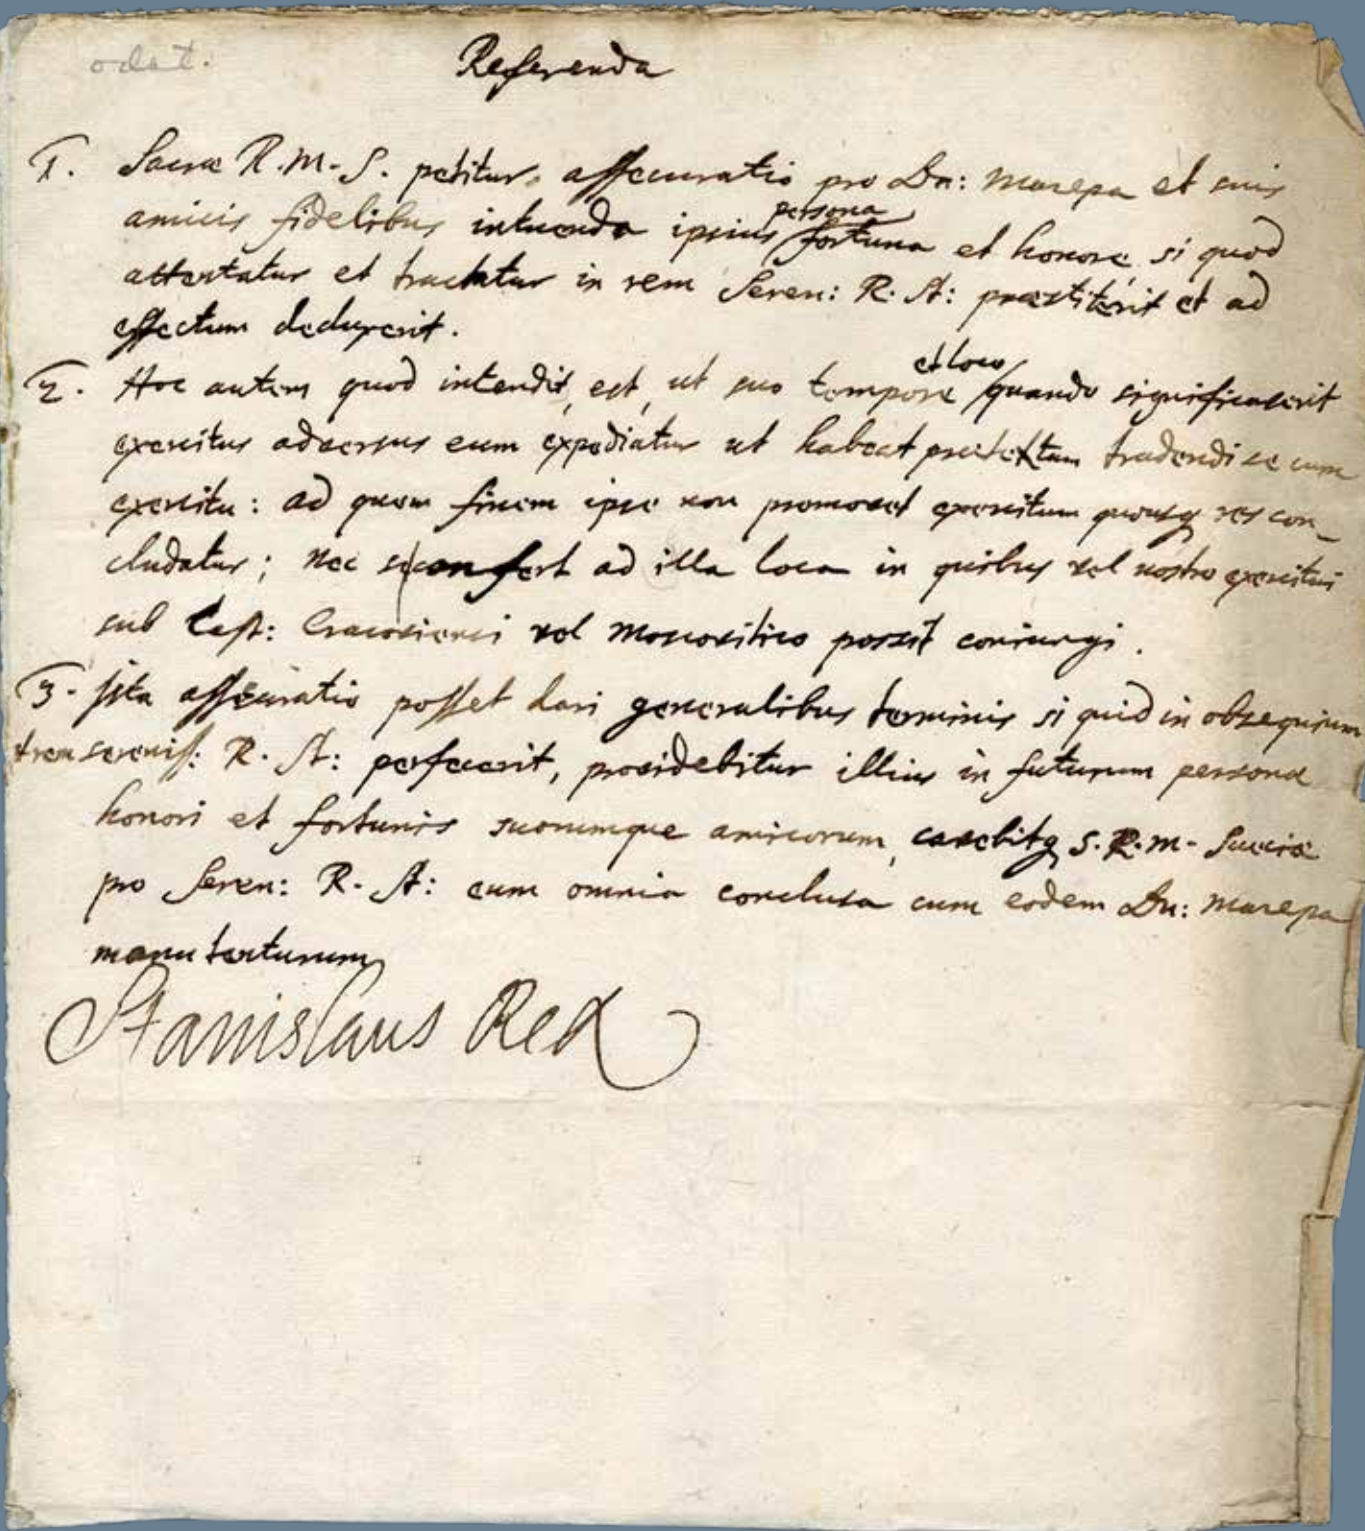 odat.
Referenda
1. Sacrae R.M.S. petitur assecuratio pro Dn: Mazepa et suis
amicis fidelibus intuenda ipsius persona fortuna et honore, si quod
attentatur et tractatur in rem Seren: R. A: praestiterit et ad
effectum deduxerit.
2. Hoc autem quod intendit, est, ut suo tempore et loco quando significaverit
exercitus adversus eum expediatur ut habeat praetextum tradendi se cum
exercitu: ad quem finem ipse non promovet exercitum quousq res con_
cludatur; nec se confert ad illa loca in quibus vel nostro exercitui
sub Cast: Cracoviensi vel Moscovitico possit coniungi.
3. Ista assecuratio posset dari generalibus terminis si quid in obsequium
sereniss: R. A: perfecerit, providebitur illius in futurum personae
honori et fortunis suorumque amicorum, cavebitq S.R.M. Sueciae
pro Seren: R. A: eum omnia conclusa cum eodem Dn: Mazepa
manutenturum
Stanislaus Rex